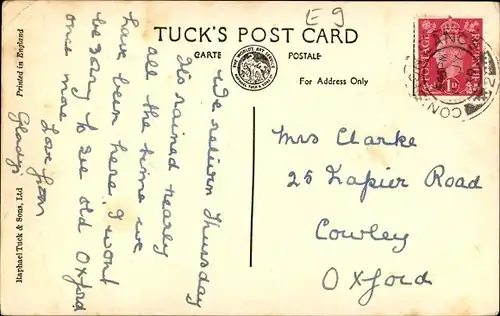 E9
TUCK'S POST CARD
CARTE POSTALE
For Address Only
POSTAGE
REVENUE
1D
Mrs Clarke
25 Napier Road
Cowley
Oxford
We return Thursday
It's rained nearly
all the time we
have been here. I wont
be sorry to see old Oxford
once more
Love from
Gladys
Raphael Tuck & Sons, Ltd
Printed in England